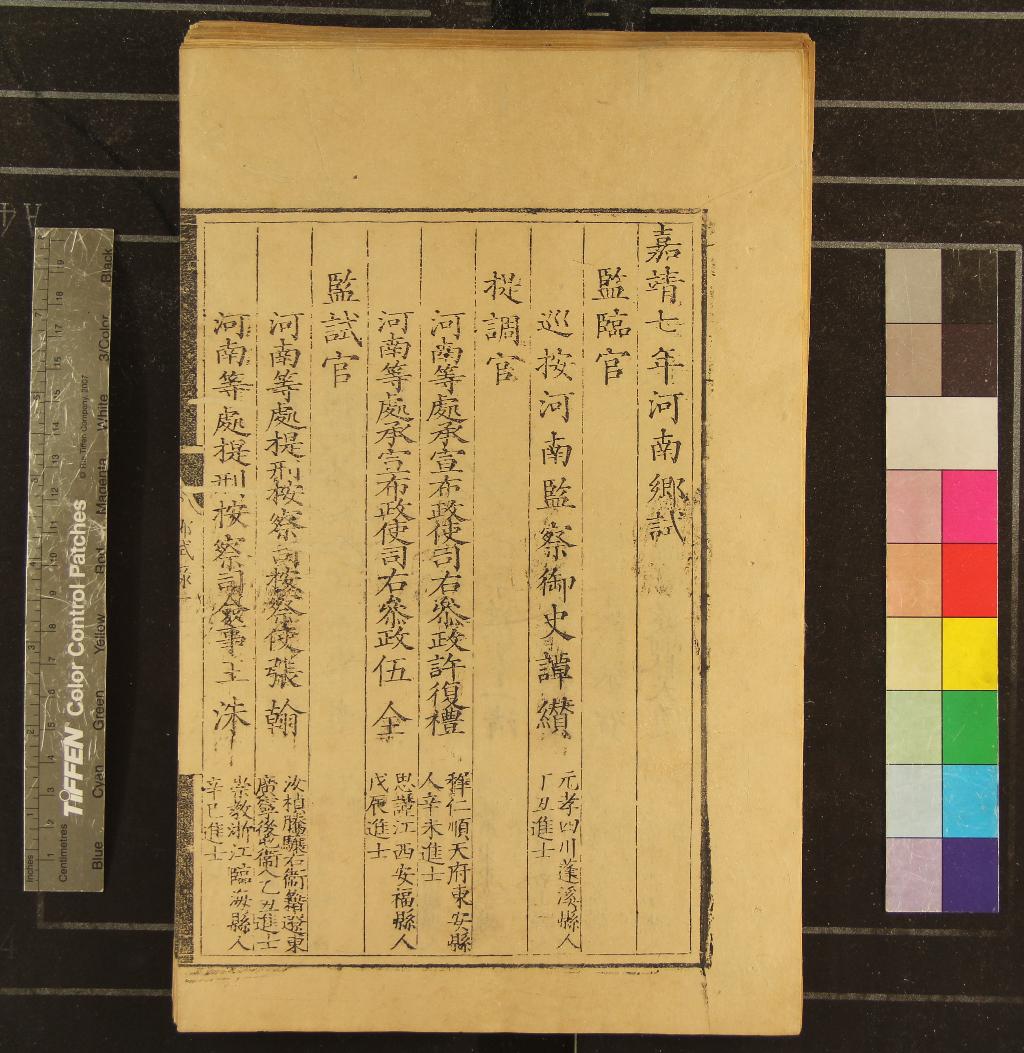 嘉靖七年河南鄉試
監臨官
巡按河南監察御史譚纘
元孝四川蓬溪縣人
丁丑進士
提調官
河南等處承宣布政使司右叅政許復禮
稺仁順天府東安縣
人辛未進士
河南等處承宣布政使司右叅政伍全
思謹江西安福縣人
戊辰進士
監試官
河南等處提刑按察司按察使張翰
汝楨騰驤右衛籍遼東
廣寧後屯衛人乙丑進士
河南等處提刑按察司僉事王洙
崇教浙江臨海縣人
辛巳進士
試錄
TIFFEN Color Control Patches
© The Tiffen Company, 2007
Blue Cyan Green Yellow Red Magenta White 3/Color Black
Inches
Centimetres
A4